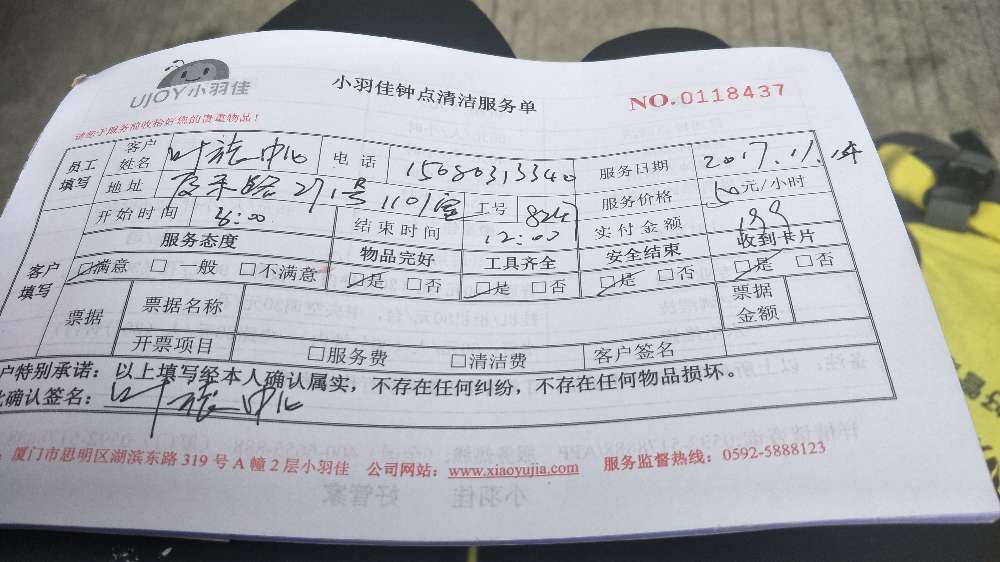 UJOY小羽佳
小羽佳钟点清洁服务单
NO.0118437
员工填写 客户姓名 叶 中心 电话 15080313340 服务日期 2017.11.
地址 厦禾路271号1101室 工号 824 服务价格 50元/小时
开始时间 :00 结束时间 12:00 实付金额 199
客户填写 服务态度 物品完好 工具齐全 安全结束 收到卡片
☑满意 □一般 □不满意 ☑是 □否 ☑是 □否 ☑是 □否 ☑是 □否
票据 票据名称 票据金额
开票项目 □服务费 □清洁费 客户签名
户特别承诺：以上填写经本人确认属实，不存在任何纠纷，不存在任何物品损坏。
确认签名：叶 中心
厦门市思明区湖滨东路 319 号 A 幢 2 层小羽佳 公司网站：www.xiaoyujia.com 服务监督热线：0592-5888123